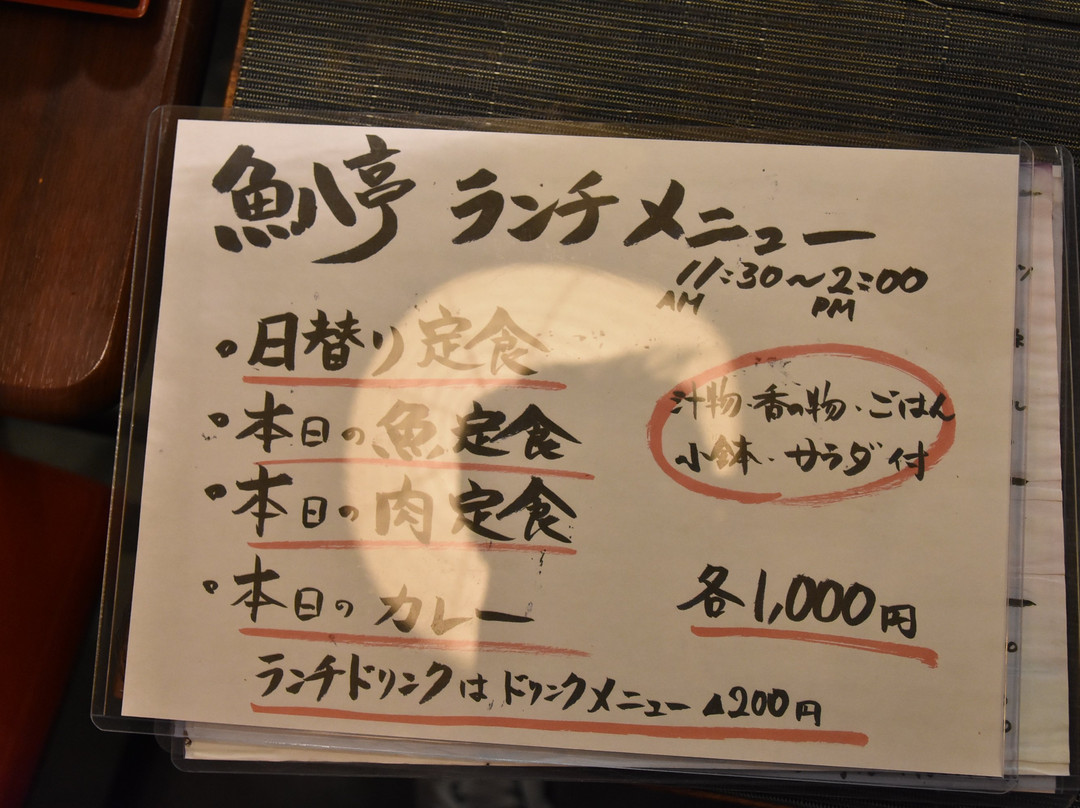 魚八亭 ランチメニュー
11:30〜2:00
AM PM
・日替り定食
・本日の魚定食
・本日の肉定食
・本日のカレー
汁物・香の物・ごはん
小鉢・サラダ付
各1,000円
ランチドリンクは、ドリンクメニュー▲200円